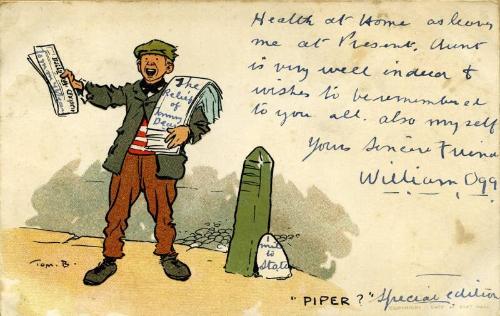 Health at Home as leaves
me at Present. Aunt
is very well indeed &
wishes to be remembered
to you all. also my self
Yours Sincere Friend
William Ogg
The
Relief
of
mile
to
Tom. B.
"PIPER?" Special edition